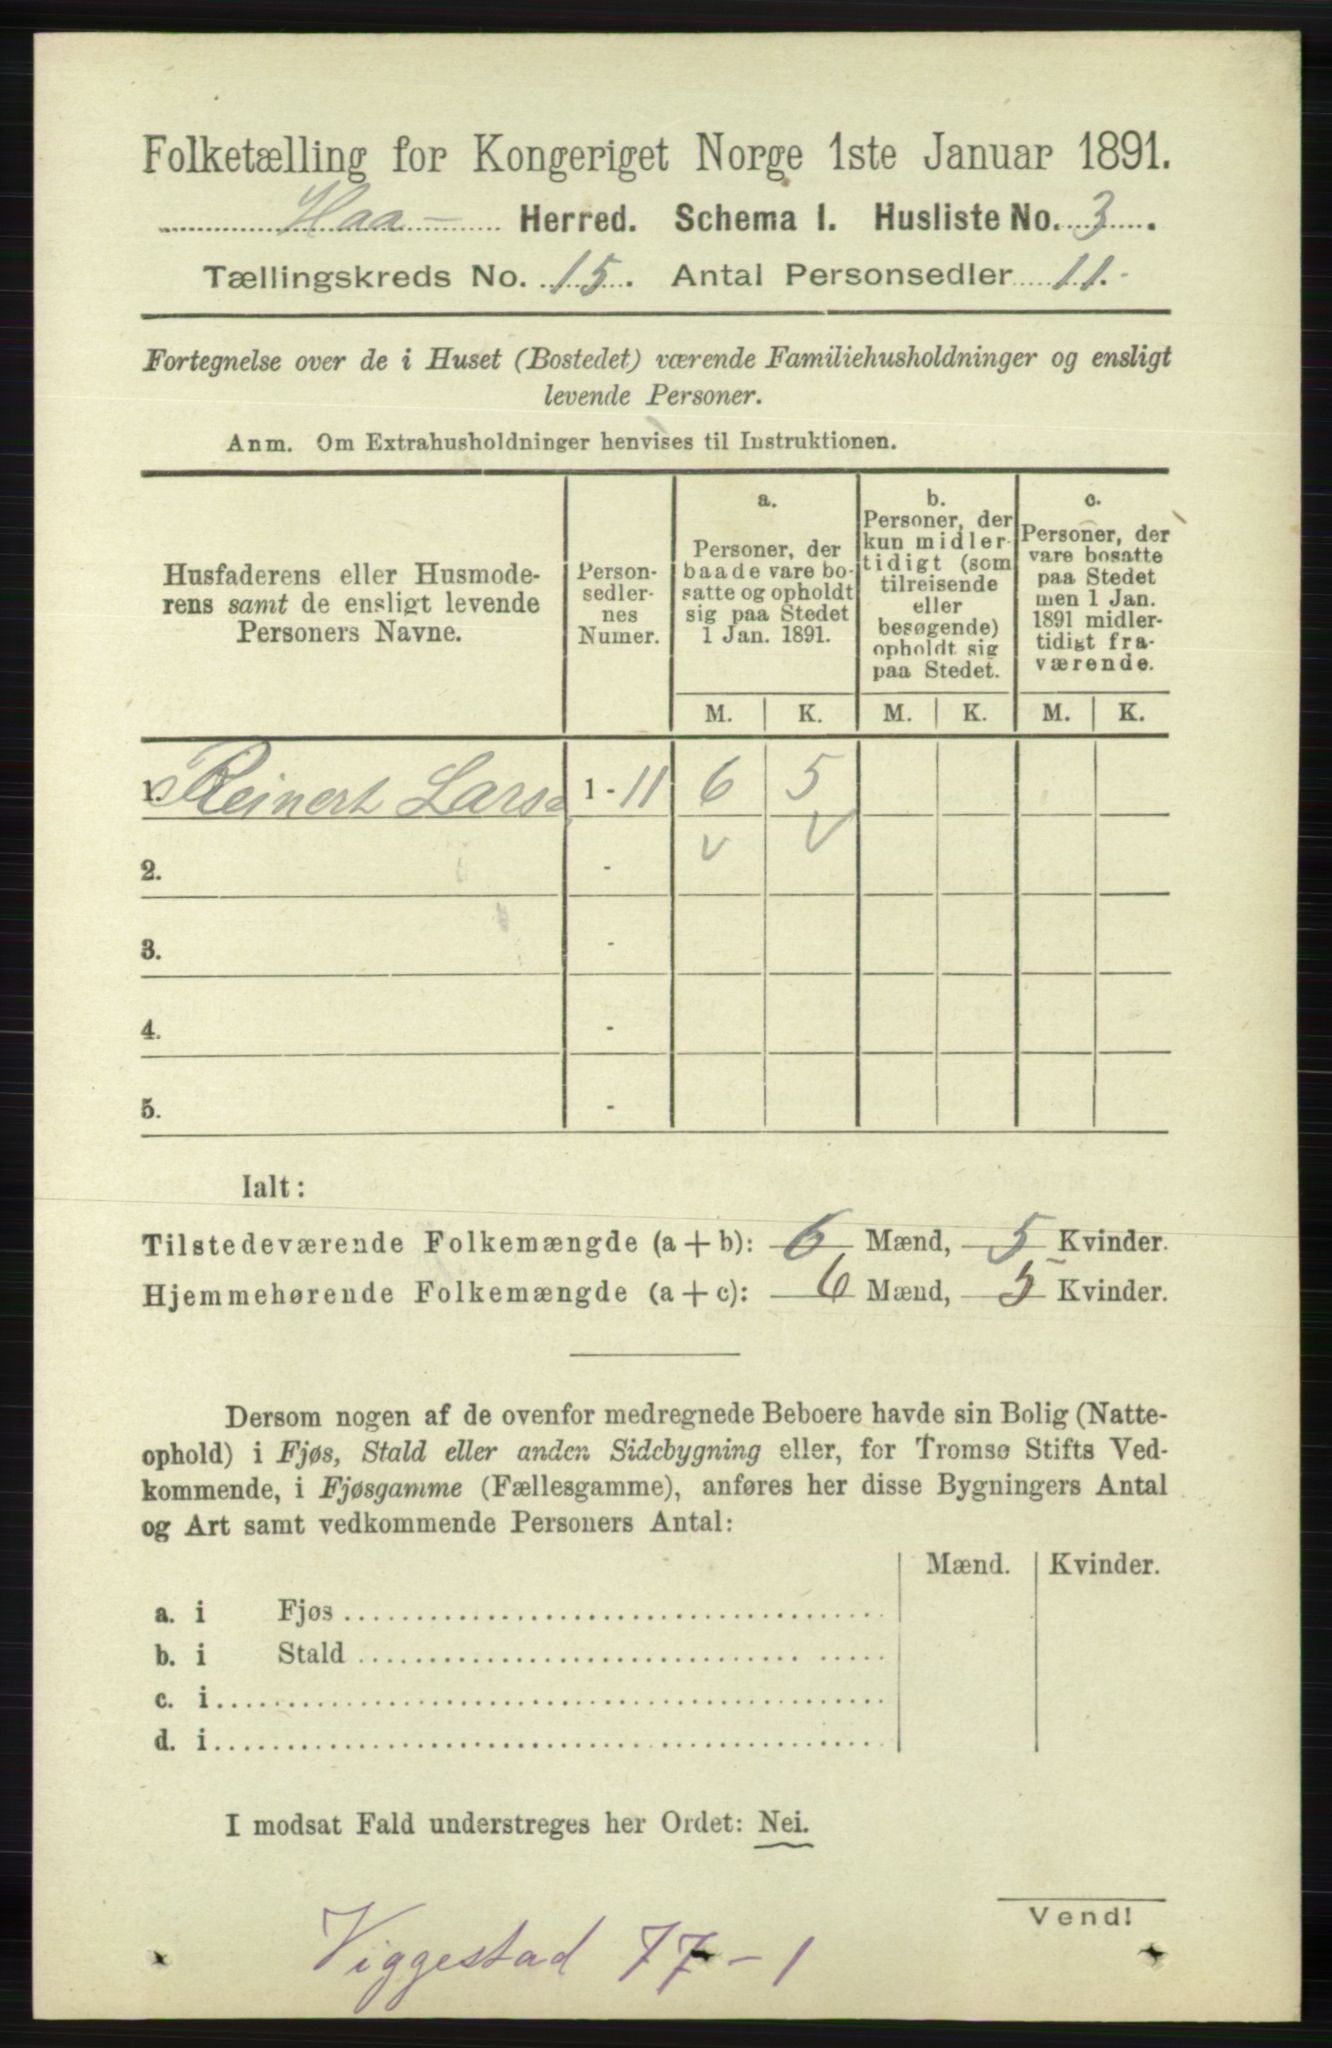 Folketælling for Kongeriget Norge 1ste Januar 1891.
Haa Herred. Schema I. Husliste No. 3.
Tællingskreds No. 15. Antal Personsedler 11.
Fortegnelse over de i Huset (Bostedet) værende Familiehusholdninger og ensligt
levende Personer.
Anm. Om Extrahusholdninger henvises til Instruktionen.
Husfaderens eller Husmode-
rens samt de ensligt levende
Personers Navne.
Person-
sedler-
nes
Numer.
a.
Personer, der
baade vare bo-
satte og opholdt
sig paa Stedet
1 Jan. 1891.
b.
Personer, der
kun midler-
tidigt (som
tilreisende
eller
besøgende)
opholdt sig
paa Stedet.
c.
Personer, der
vare bosatte
paa Stedet
men 1 Jan.
1891 midler-
tidigt fra-
værende.
M. K. M. K. M. K.
1. Reinert Lars 1 - 11 6 5
2. - v v
3. -
4. -
5. -
Ialt:
Tilstedeværende Folkemængde (a + b): 6 Mænd, 5 Kvinder.
Hjemmehørende Folkemængde (a + c): 6 Mænd, 5 Kvinder.
Dersom nogen af de ovenfor medregnede Beboere havde sin Bolig (Natte-
ophold) i Fjøs, Stald eller anden Sidebygning eller, for Tromsø Stifts Ved-
kommende, i Fjøsgamme (Fællesgamme), anføres her disse Bygningers Antal
og Art samt vedkommende Personers Antal:
Mænd. Kvinder.
a. i Fjøs
b. i Stald
c. i
d. i
I modsat Fald understreges her Ordet: Nei.
Vend!
Viggestad 77-1